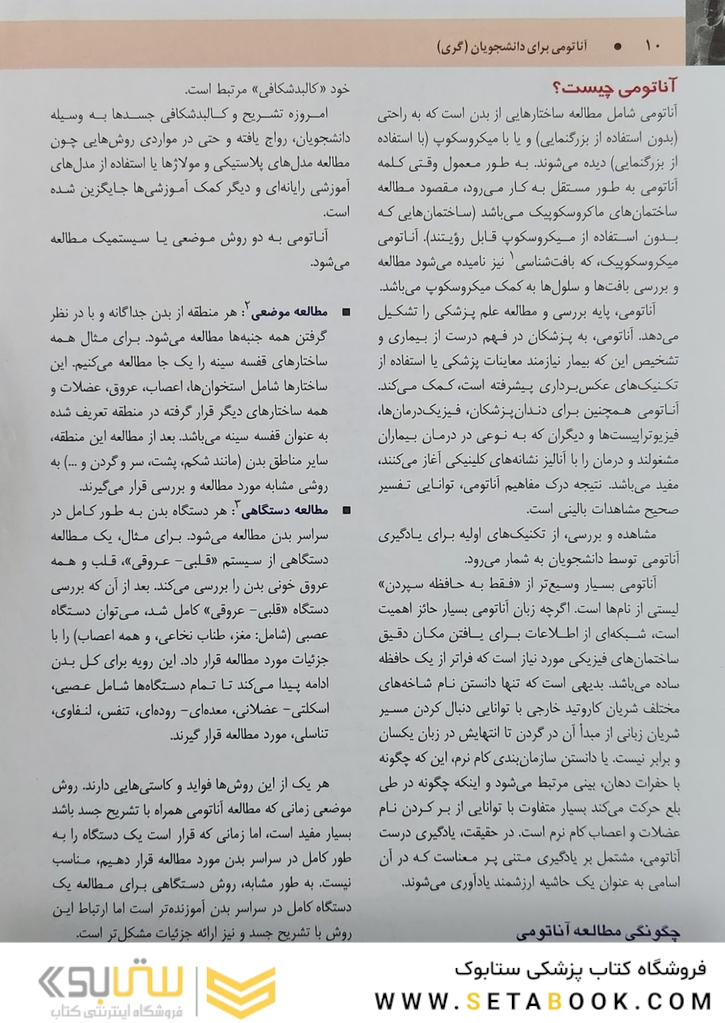 ۱۰ • آناتومی برای دانشجویان (گری)
آناتومی چیست؟
آناتومی شامل مطالعه ساختارهایی از بدن است که به راحتی
(بدون استفاده از بزرگنمایی) و یا با میکروسکوپ (با استفاده
از بزرگنمایی) دیده می‌شوند. به طور معمول وقتی کلمه
آناتومی به طور مستقل به کار می‌رود، مقصود مطالعه
ساختمان‌های ماکروسکوپیک می‌باشد (ساختمان‌هایی که
بدون استفاده از میکروسکوپ قابل رؤیتند). آناتومی
میکروسکوپیک، که بافت‌شناسی۱ نیز نامیده می‌شود مطالعه
و بررسی بافت‌ها و سلول‌ها به کمک میکروسکوپ می‌باشد.
آناتومی، پایه بررسی و مطالعه علم پزشکی را تشکیل
می‌دهد. آناتومی، به پزشکان در فهم درست از بیماری و
تشخیص این که بیمار نیازمند معاینات پزشکی یا استفاده از
تکنیک‌های عکس‌برداری پیشرفته است، کمک می‌کند.
آناتومی همچنین برای دندان‌پزشکان، فیزیک‌درمان‌ها،
فیزیوتراپیست‌ها و دیگران که به نوعی در درمان بیماران
مشغولند و درمان را با آنالیز نشانه‌های کلینیکی آغاز می‌کنند،
مفید می‌باشد. نتیجه درک مفاهیم آناتومی، توانایی تفسیر
صحیح مشاهدات بالینی است.
مشاهده و بررسی، از تکنیک‌های اولیه برای یادگیری
آناتومی توسط دانشجویان به شمار می‌رود.
آناتومی بسیار وسیع‌تر از «فقط به حافظه سپردن»
لیستی از نام‌ها است. اگرچه زبان آناتومی بسیار حائز اهمیت
است، شبکه‌ای از اطلاعات برای یافتن مکان دقیق
ساختمان‌های فیزیکی مورد نیاز است که فراتر از یک حافظه
ساده می‌باشد. بدیهی است که تنها دانستن نام شاخه‌های
مختلف شریان کاروتید خارجی با توانایی دنبال کردن مسیر
شریان زبانی از مبدأ آن در گردن تا انتهایش در زبان یکسان
و برابر نیست. یا دانستن سازمان‌بندی کام نرم، این که چگونه
با حفرات دهان، بینی مرتبط می‌شود و اینکه چگونه در طی
بلع حرکت می‌کند بسیار متفاوت با توانایی از بر کردن نام
عضلات و اعصاب کام نرم است. در حقیقت، یادگیری درست
آناتومی، مشتمل بر یادگیری متنی پر معناست که در آن
اسامی به عنوان یک حاشیه ارزشمند یادآوری می‌شوند.
چگونگی مطالعه آناتومی
خود «کالبدشکافی» مرتبط است.
امروزه تشریح و کالبدشکافی جسدها به وسیله
دانشجویان، رواج یافته و حتی در مواردی روش‌هایی چون
مطالعه مدل‌های پلاستیکی و مولاژها یا استفاده از مدل‌های
آموزشی رایانه‌ای و دیگر کمک آموزشی‌ها جایگزین شده
است.
آناتومی به دو روش موضعی یا سیستمیک مطالعه
می‌شود.
■ مطالعه موضعی۲: هر منطقه از بدن جداگانه و با در نظر
گرفتن همه جنبه‌ها مطالعه می‌شود. برای مثال همه
ساختارهای قفسه سینه را یک جا مطالعه می‌کنیم. این
ساختارها شامل استخوان‌ها، اعصاب، عروق، عضلات و
همه ساختارهای دیگر قرار گرفته در منطقه تعریف شده
به عنوان قفسه سینه می‌باشد. بعد از مطالعه این منطقه،
سایر مناطق بدن (مانند شکم، پشت، سر و گردن و ...) به
روشی مشابه مورد مطالعه و بررسی قرار می‌گیرند.
■ مطالعه دستگاهی۳: هر دستگاه بدن به طور کامل در
سراسر بدن مطالعه می‌شود. برای مثال، یک مطالعه
دستگاهی از سیستم «قلبی- عروقی»، قلب و همه
عروق خونی بدن را بررسی می‌کند. بعد از آن که بررسی
دستگاه «قلبی- عروقی» کامل شد، می‌توان دستگاه
عصبی (شامل: مغز، طناب نخاعی، و همه اعصاب) را با
جزئیات مورد مطالعه قرار داد. این رویه برای کل بدن
ادامه پیدا می‌کند تا تمام دستگاه‌ها شامل عصبی،
اسکلتی- عضلانی، معده‌ای- روده‌ای، تنفس، لنفاوی،
تناسلی، مورد مطالعه قرار گیرند.
هر یک از این روش‌ها فواید و کاستی‌هایی دارند. روش
موضعی زمانی که مطالعه آناتومی همراه با تشریح جسد باشد
بسیار مفید است، اما زمانی که قرار است یک دستگاه را به
طور کامل در سراسر بدن مورد مطالعه قرار دهیم، مناسب
نیست. به طور مشابه، روش دستگاهی برای مطالعه یک
دستگاه کامل در سراسر بدن آموزنده‌تر است اما ارتباط این
روش با تشریح جسد و نیز ارائه جزئیات مشکل‌تر است.
فروشگاه کتاب پزشکی ستابوک
WWW.SETABOOK.COM
ستابوک
فروشگاه اینترنتی کتاب